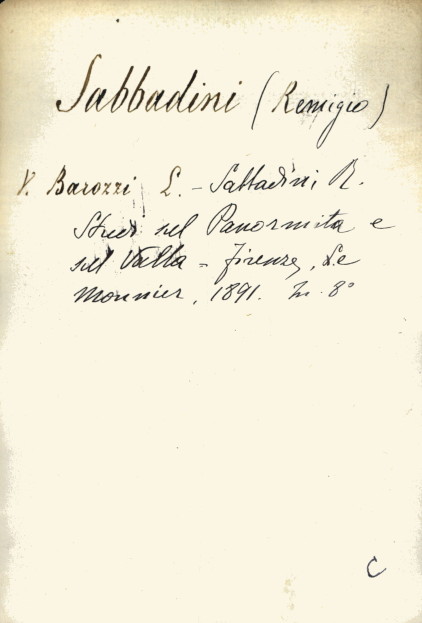 Sabbadini (Remigio)
V. Barozzi L. - Sabbadini, R.
Studi sul Panormita e
sul Valla - Firenze, Le
Monnier, 1891. In 8°
C